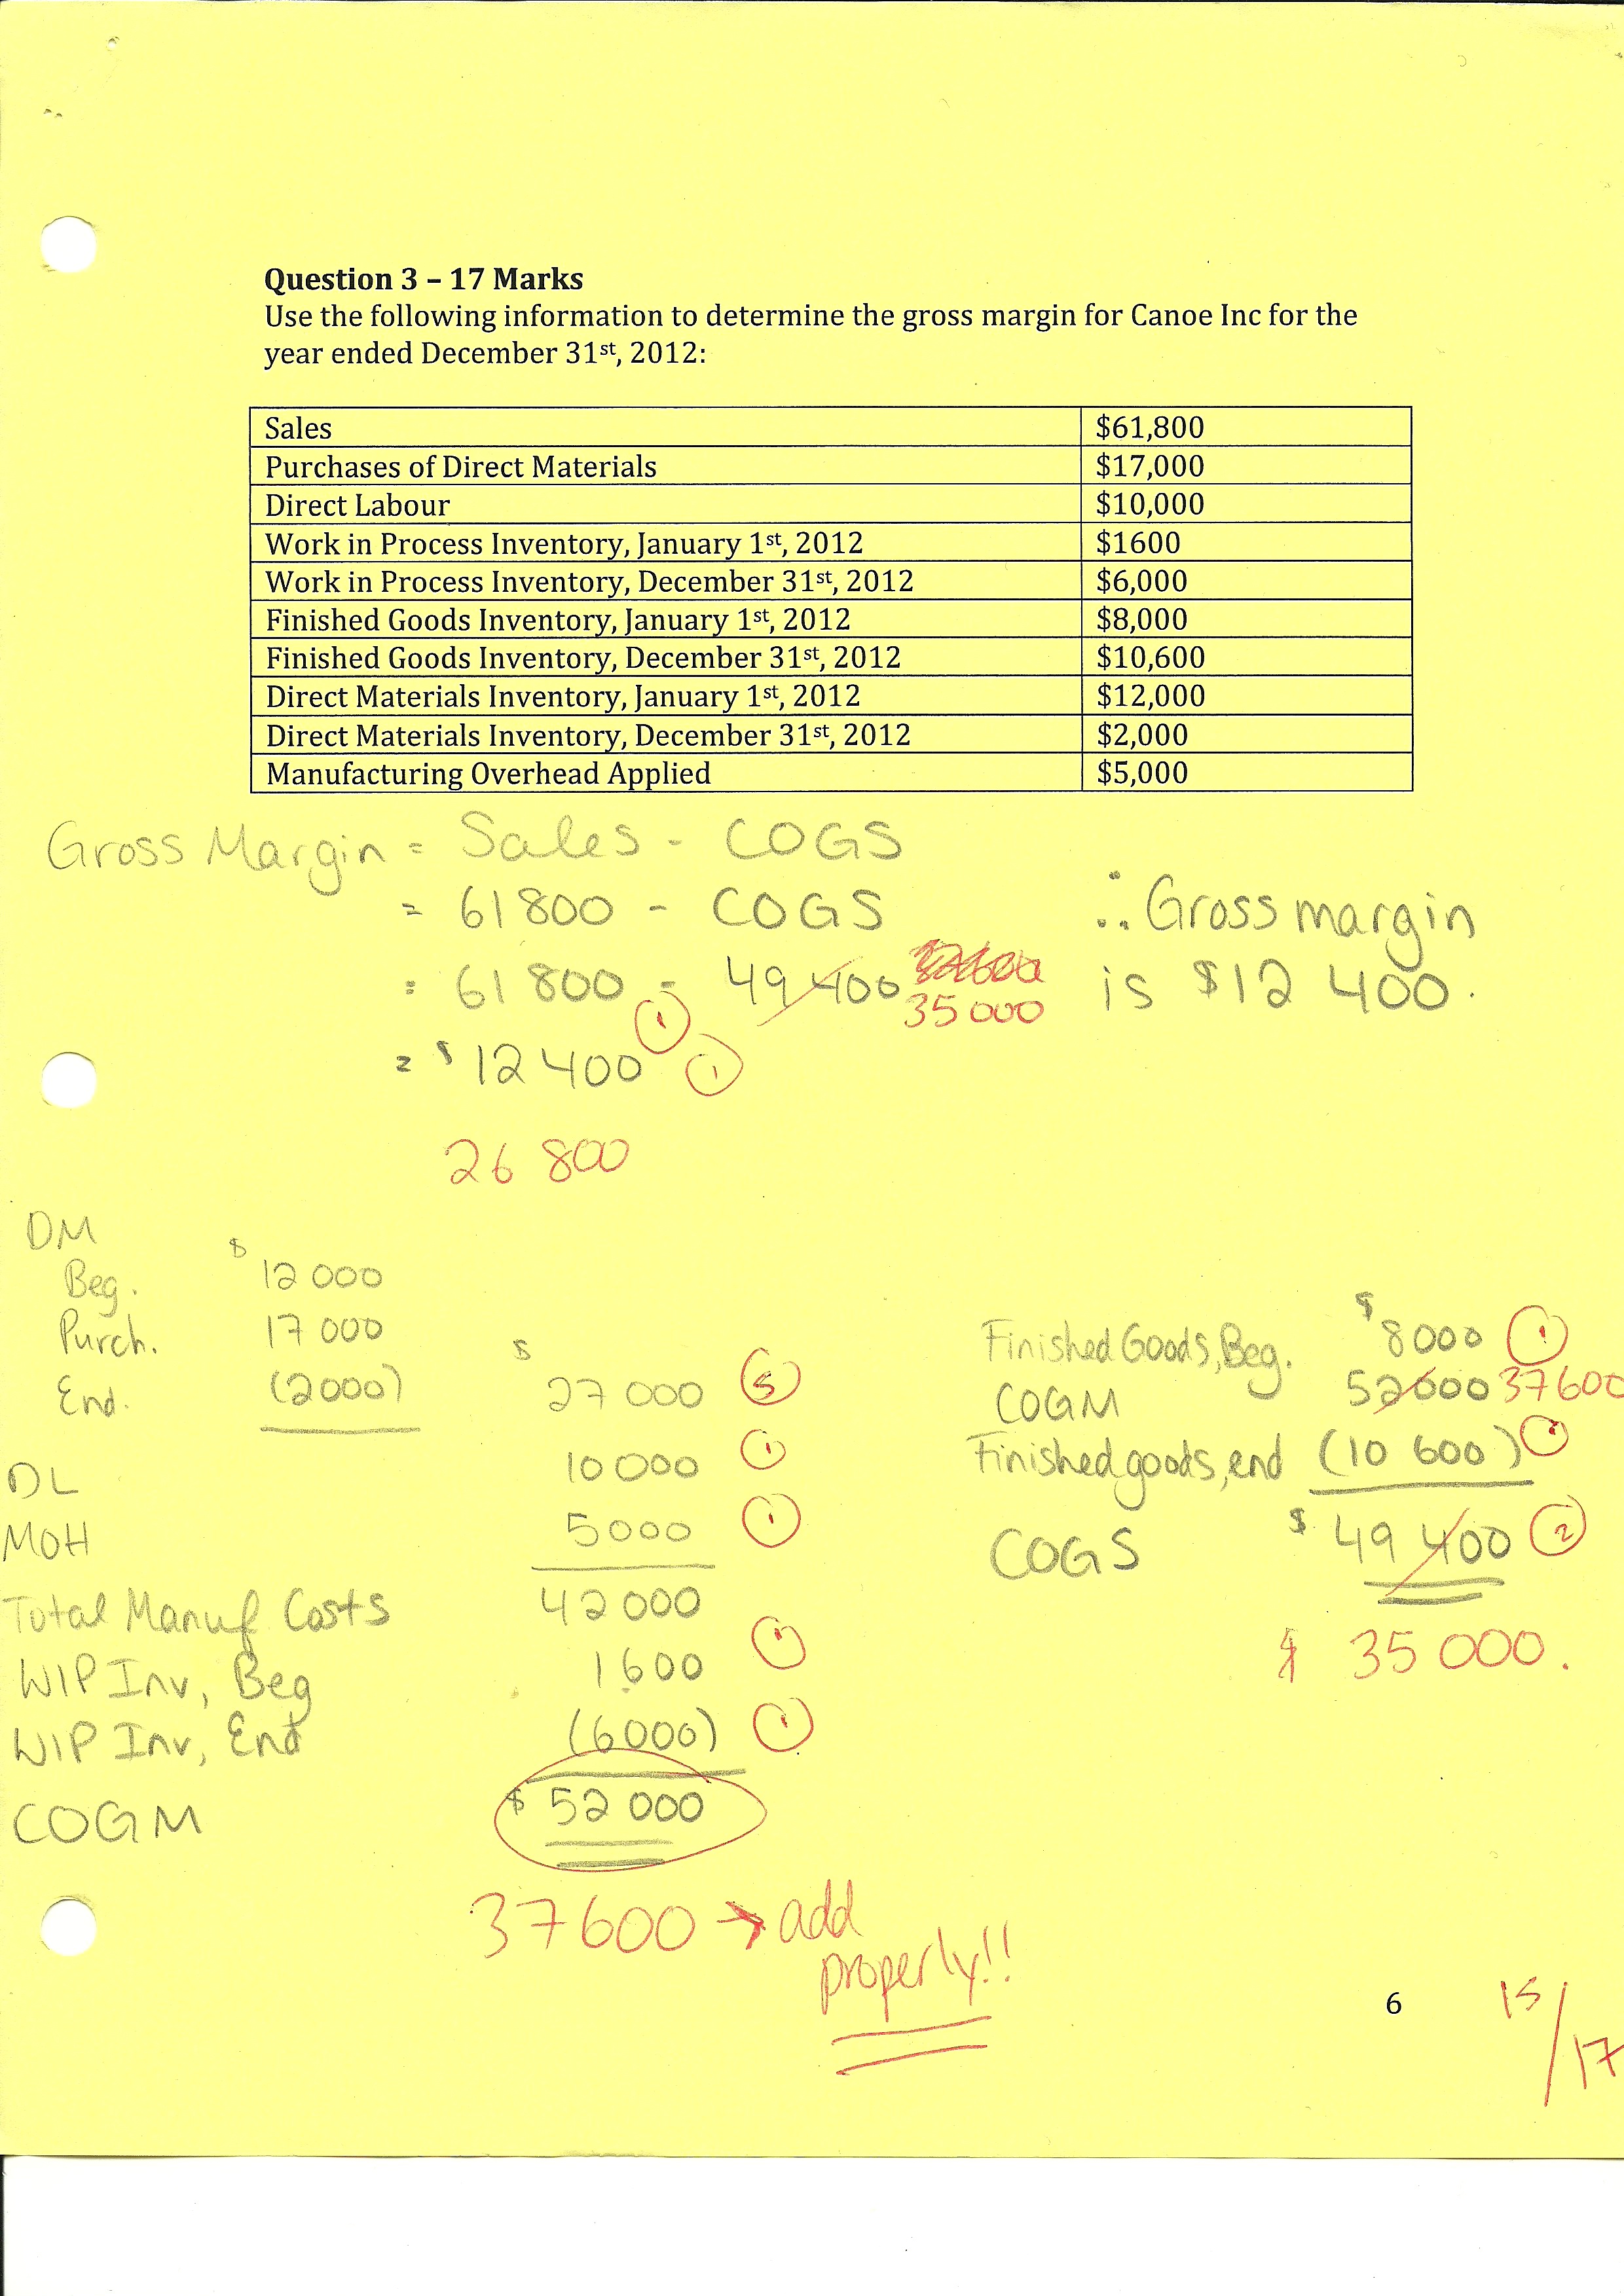 Question 3 – 17 Marks
Use the following information to determine the gross margin for Canoe Inc for the
year ended December 31st, 2012:
Sales $61,800
Purchases of Direct Materials $17,000
Direct Labour $10,000
Work in Process Inventory, January 1st, 2012 $1600
Work in Process Inventory, December 31st, 2012 $6,000
Finished Goods Inventory, January 1st, 2012 $8,000
Finished Goods Inventory, December 31st, 2012 $10,600
Direct Materials Inventory, January 1st, 2012 $12,000
Direct Materials Inventory, December 31st, 2012 $2,000
Manufacturing Overhead Applied $5,000
Gross Margin = Sales - COGS
= 61800 - COGS
= 61 800 - 49 400
35 000
1
= $12 400 1
26 800
∴ Gross margin
is $12 400.
DM
Beg. $12 000
Purch. 17 000
End. (2000) $27 000 5
DL 10 000 1
MOH 5000 1
Total Manuf Costs 42 000
WIP Inv, Beg 1600 1
WIP Inv, End (6000) 1
COGM $52 000
37600 → add
properly!!
Finished Goods, Beg. $8000 1
COGM 52000 37600
Finished goods, end (10 600)
COGS $49 400 2
$ 35 000.
6
15/17